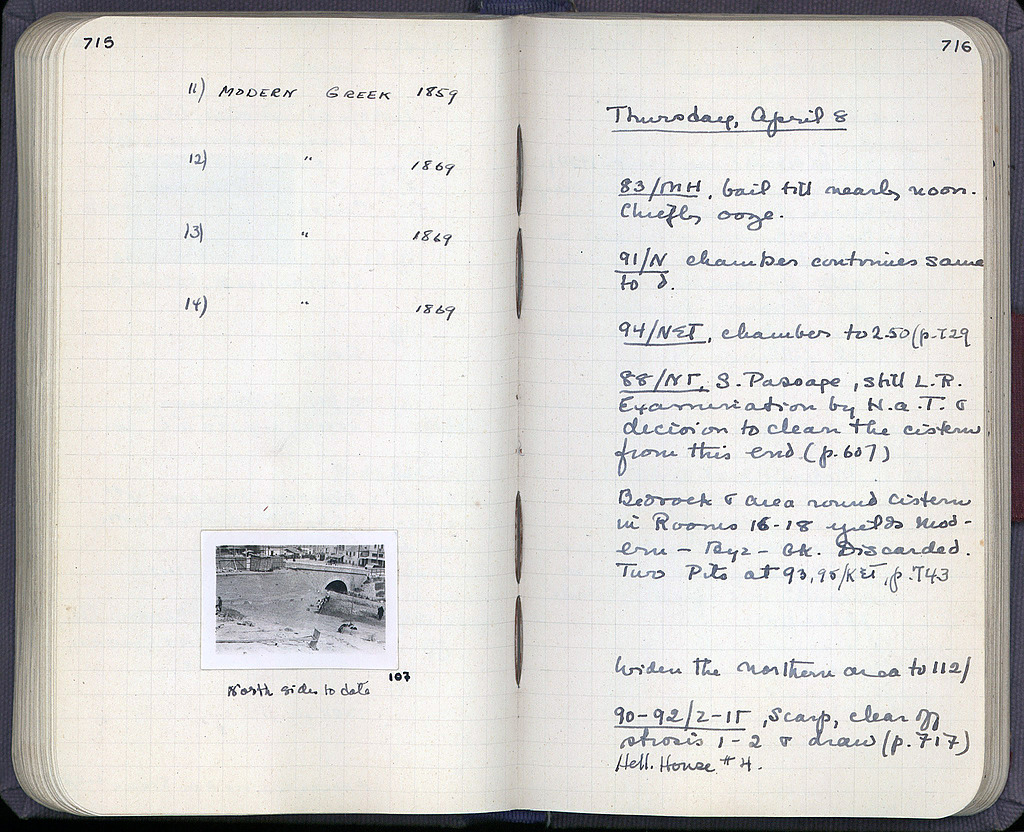 715
11) MODERN GREEK 1859
12) " 1869
13) " 1869
14) " 1869
107
North side to date
716
Thursday, April 8
83/MH, bail till nearly noon.
Chiefly ooze.
91/N chamber continues same
to d.
94/ chamber to 2.50 (p. 729
88/NΓ, S. Passage, still L.R.
Examination by H.A.T. &
decision to clean the cistern
from this end (p. 607)
Bedrock & area round cistern
in Rooms 16-18 yields Mod-
ern - Byz - Gk. Discarded.
Two Pits at 93, 95/ p. 743
Widen the northern area to 112/
90-92/ Scarp, clear off
strosis 1-2 & draw (p. 717)
Hell. House #4.